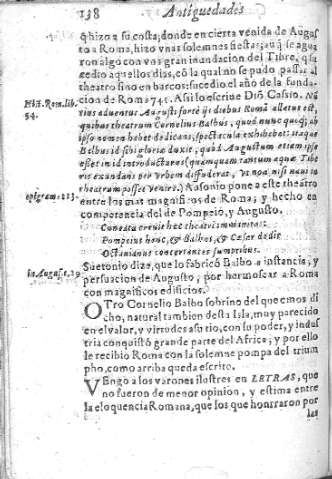 138 Antiguedades
q̃ hizo a su costa; donde en cierta venida de Augus
to a Roma, hizo vnas solemnes fiestas; auq̃ se agua
ron algo con vna gran inundacion del Tibre, q̃ su
cedio aquellos dias, cõ la qual no se pudo passar al
theatro sino en barcos: sucedio el año de la funda-
Hist. Rom. lib. cion de Roma 741. Assi lo escriue Diõ Cassio. Nã
54. rius aduentus Augusti fortè ijs diebus Romã allatus est,
quibus theatrum Cornelius Balbus, quod nunc quoq; ab
ipso nomen habet dedicans, spectacula exhibebat: itaque
Balbus id sibi gloriæ duxit, quòd Augustum etiam ipse
esset in id introducturus (quamquam tantum aquæ Tibe
ris exundans per vrbem diffuderat, vt non nisi nauis in
theatrum posset venire.) Ausonio pone a este theatro
epigram. 213. entre los mas magnificos de Roma; y hecho en
competencia del de Pompeio, y Augusto.
Pompeius hanc, & Balbus, & Cæsar dedit
Octauianus concertantes sumptibus.
in August. c. 29 Suetonio dize, que lo fabricò Balbo a instancia, y
persuacion de Augusto, por hermosear a Roma
con magnificos edificios.
OTro Cornelio Balbo sobrino del que emos di
cho, natural tambien desta Isla, muy parecido
en el valor, y virtudes a su tio, con su poder, y indus
tria conquistó grande parte del Africa; y por ello
le recibio Roma con la solemne pompa del trium
pho, como arriba queda escrito.
VEngo a los varones ilustres en LETRAS, que
no fueron de menor opinion, y estima entre
la eloquencia Romana, que los que honraron por
las